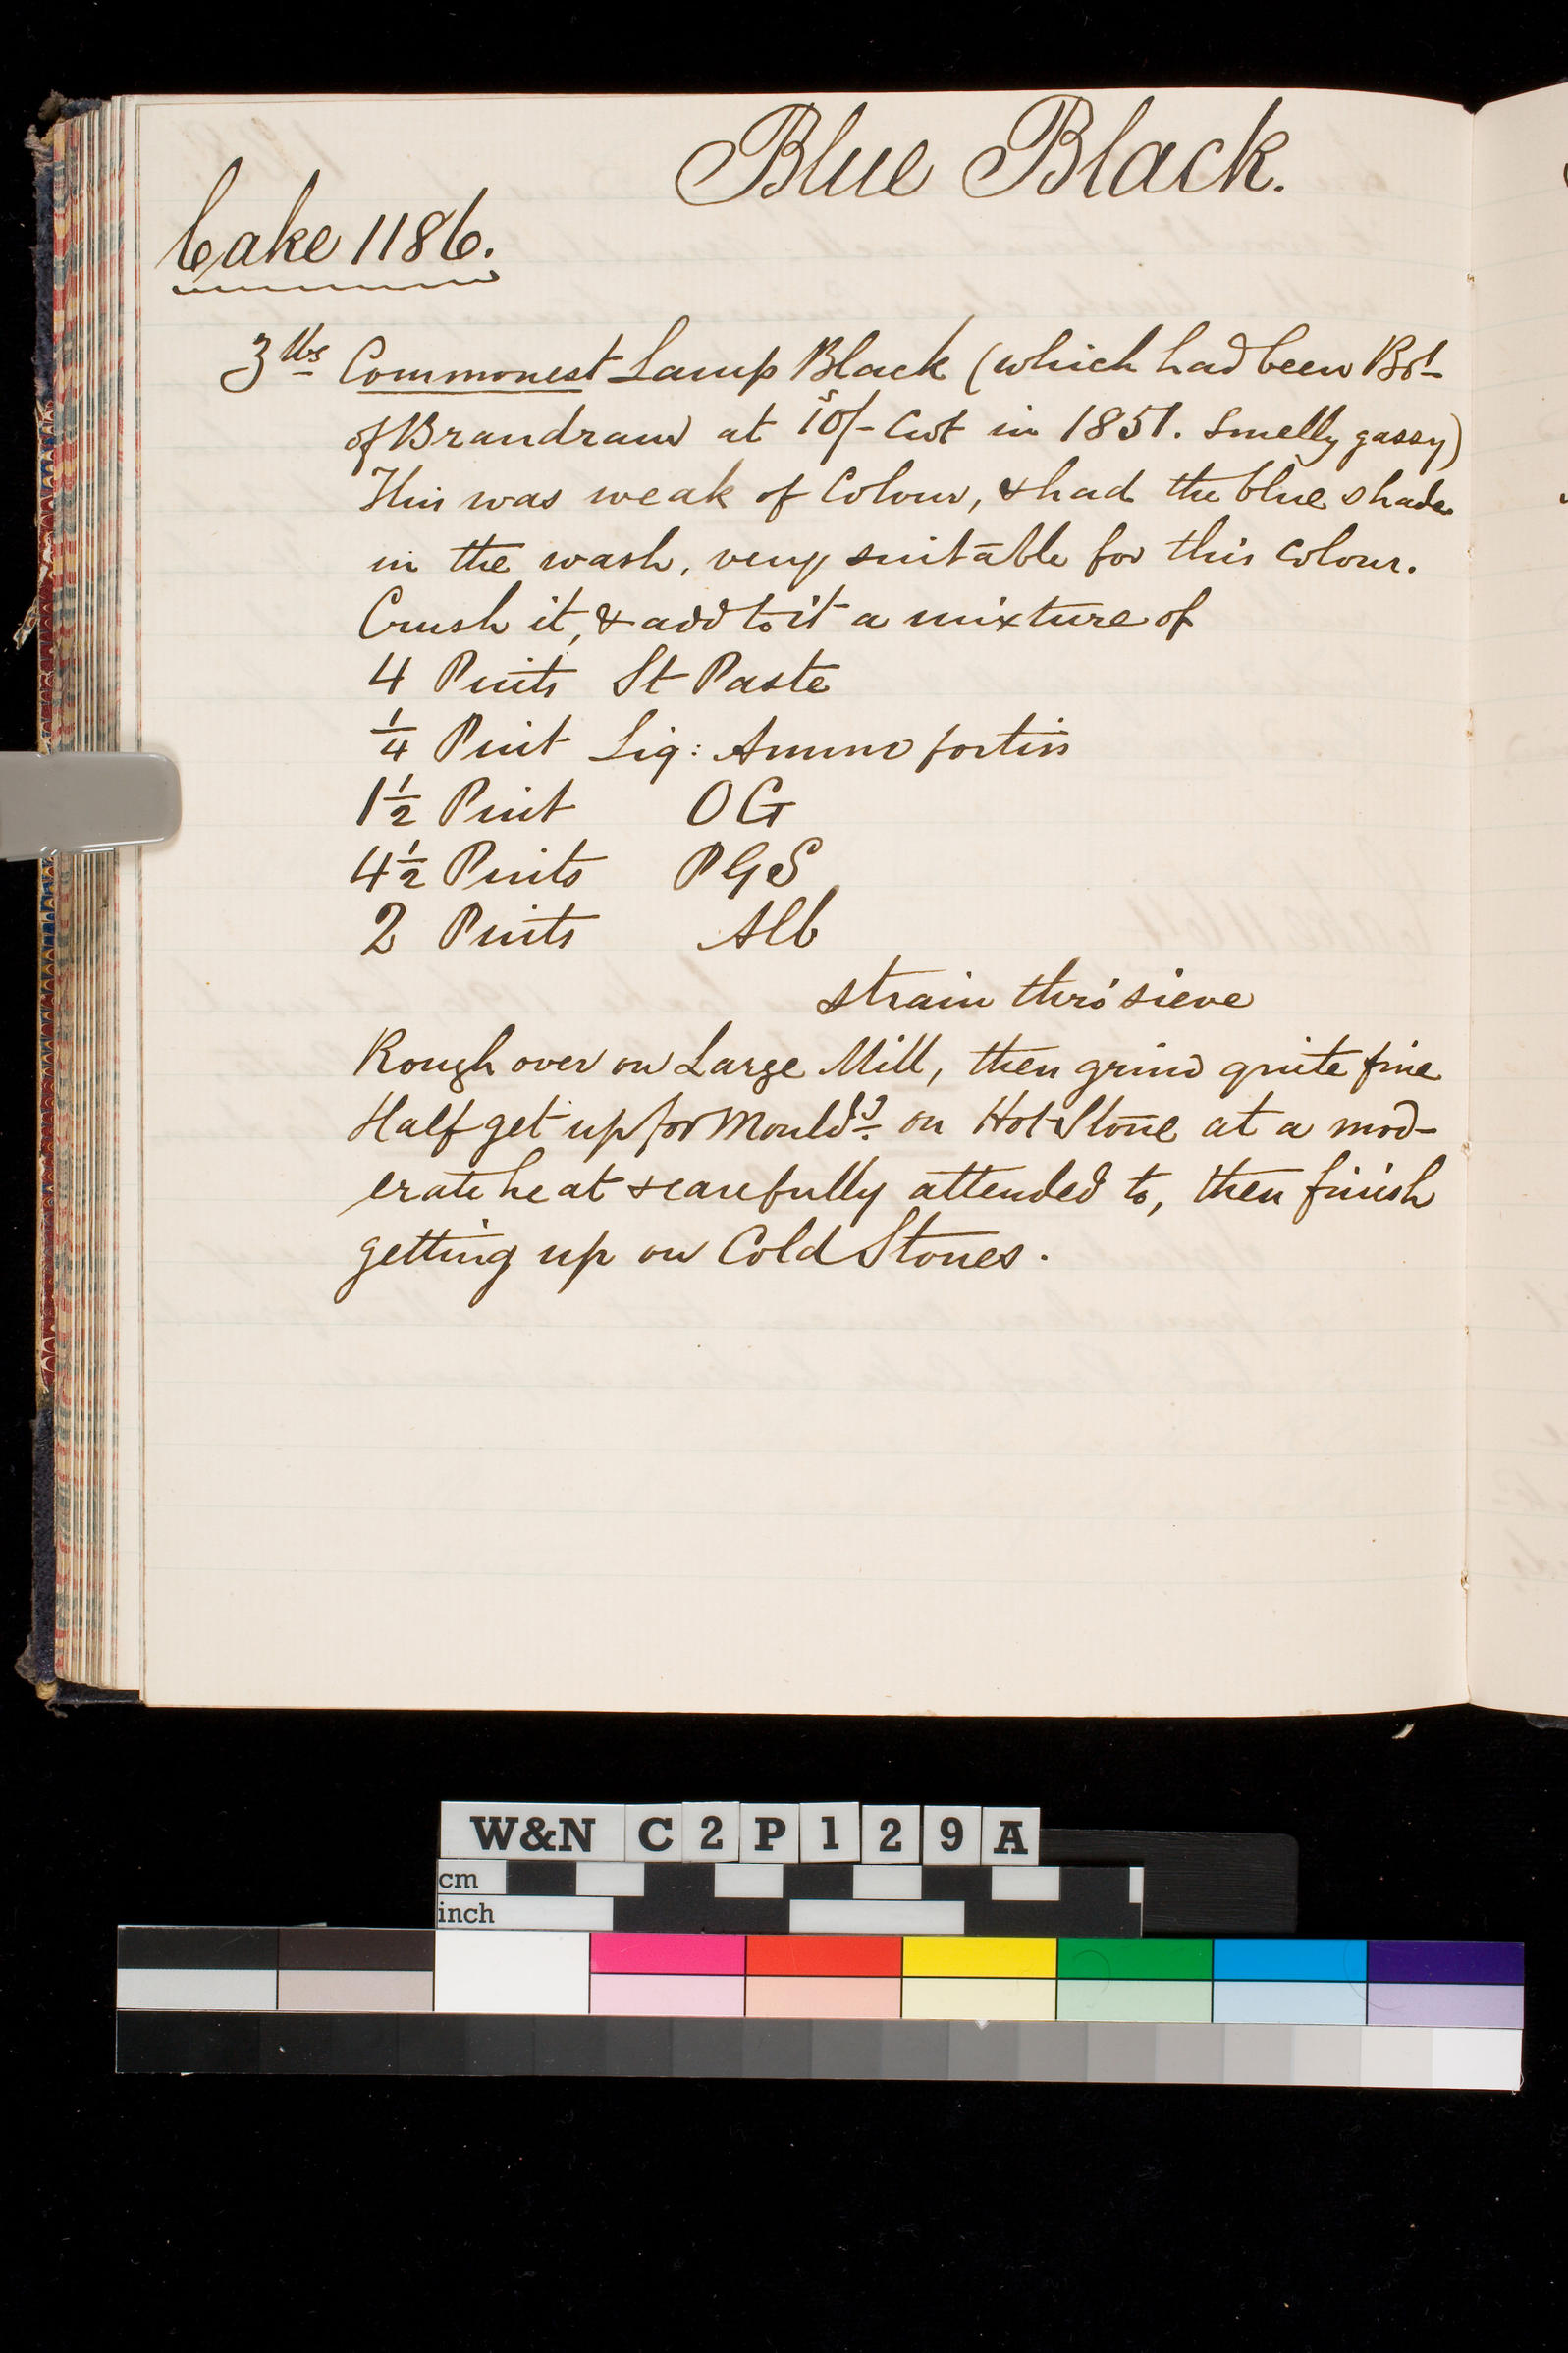 Blue Black.
Cake 1186.
3 lbs Commonest Lamp Black (which had been Bot
of Brandram at 10s/- Cwt in 1851. Smelly gassy)
This was weak of Colour, & had the blue shade
in the wash, very suitable for this Colour.
Crush it, & add to it a mixture of
4 Pints St Paste
1/4 Pint Liq: Ammo fortiss
1 1/2 Pint OG
4 1/2 Pints PGS
2 Pints Alb
strain thro' sieve
Rough over on Large Mill, then grind quite fine
Half get up for Mouldg on Hot Stone at a mod-
erate heat & carefully attended to, then finish
getting up on Cold Stones.
W&N C2P129A
cm
inch